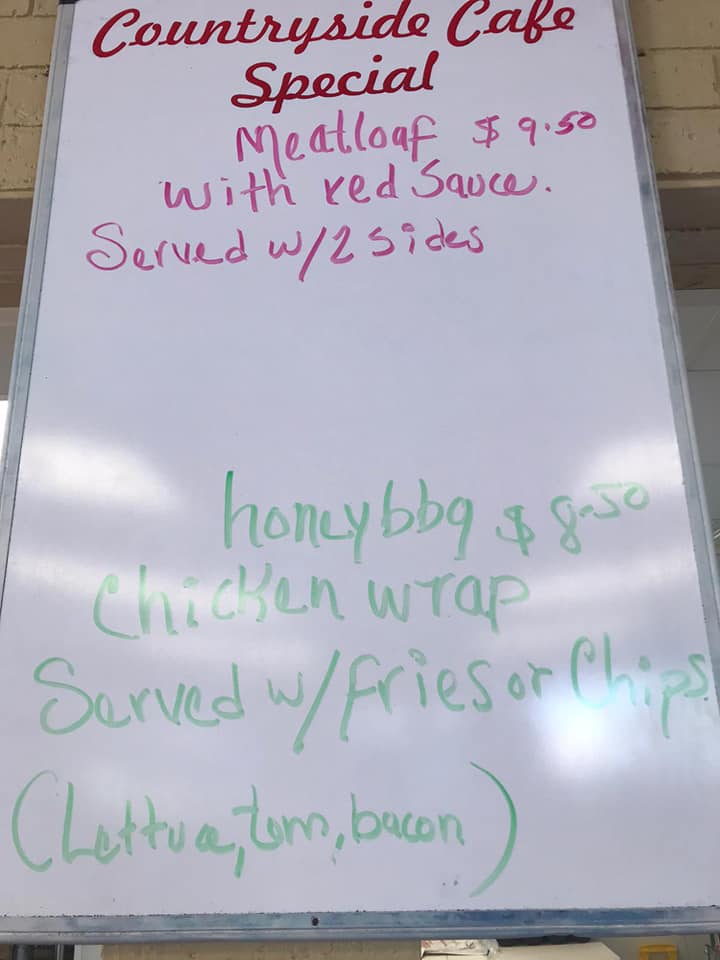 Countryside Cafe
Special
Meatloaf $9.50
with red Sauce.
Served w/2 sides
honey bbq $8.50
chicken wrap
Served w/fries or Chips
(Lettuce, tom, bacon)